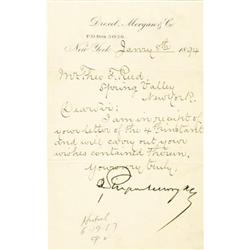 Drexel, Morgan & Co
P.O. Box 3036.
New York Jan'ry 8th 1894
Mr Theo F. Reed,
Spring Valley
New York.
Dear Sir:
I am in receipt
of your letter of the 4th instant
and will carry out your
wishes contained therein.
Yours very truly,